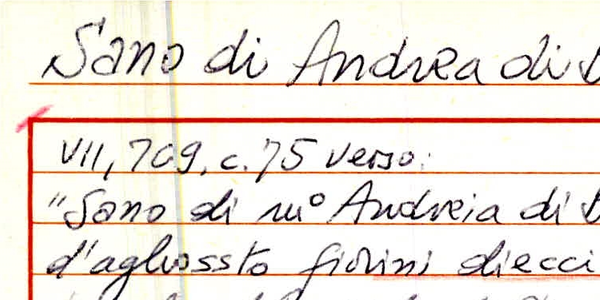 Sano di Andrea di
VII, 709, c. 75 verso:
"Sano di mº Andreia di
d'aghossto fiorini diecci